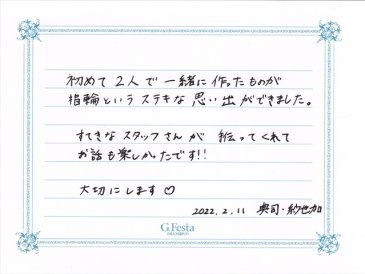 初めて2人で一緒に作ったものが
指輪というステキな思い出ができました。
すてきなスタッフさんが 伝ってくれて
お話も楽しかったです!!
大切にします♡
2022.2.11
G.Festa